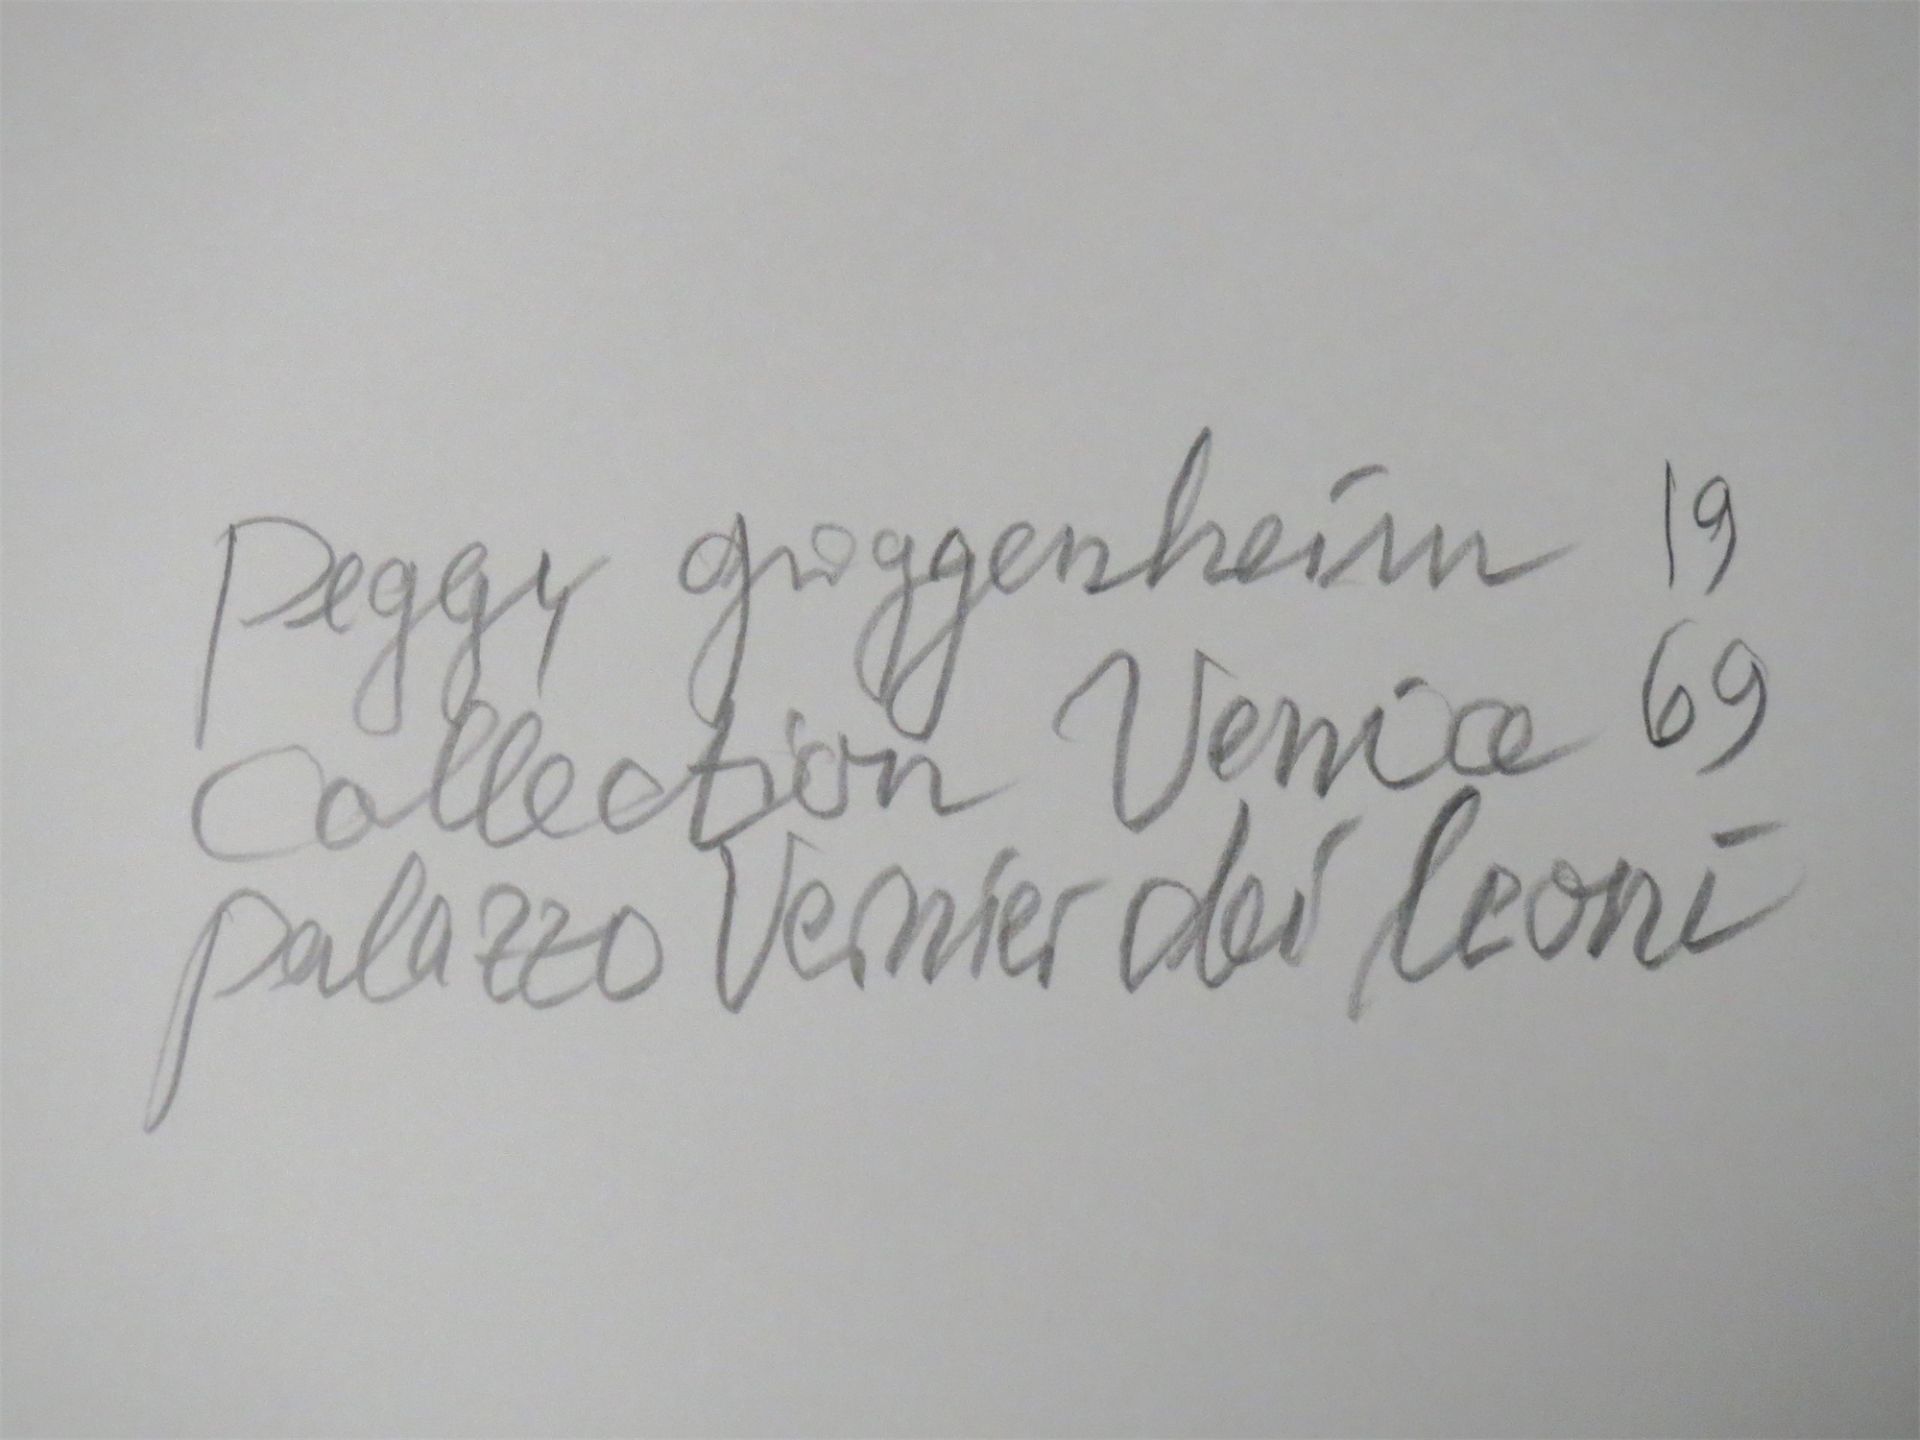 Peggy guggenheim 19
Collection Venice 69
palazzo Vernier dei leoni